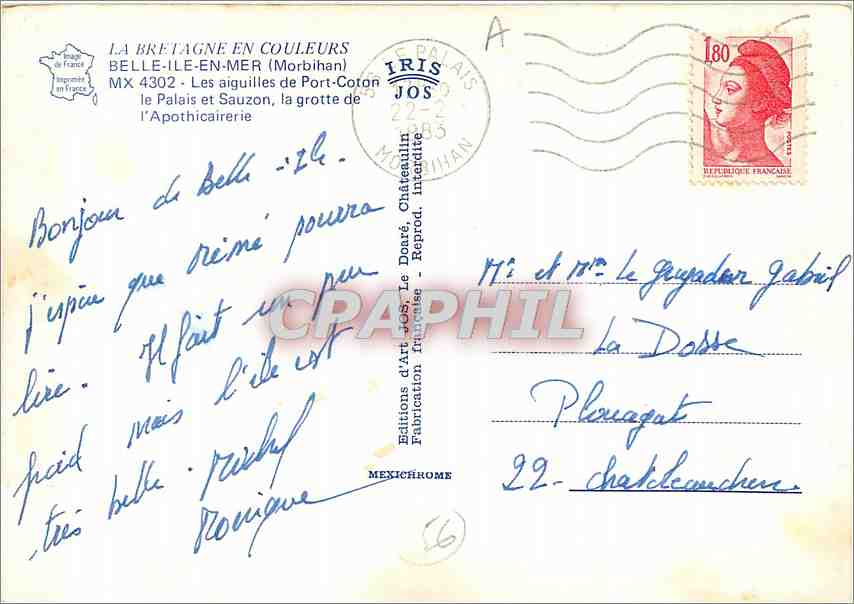 LA BRETAGNE EN COULEURS
BELLE-ILE-EN-MER (Morbihan)
MX 4302 - Les aiguilles de Port-Coton
le Palais et Sauzon, la grotte de
l'Apothicairerie
Image
de France
Imprimée
en France
IRIS
JOS
LE PALAIS
22-2
1983
MORBIHAN
A
1,80
POSTES
REPUBLIQUE FRANÇAISE
Bonjour de Belle-Ile.
j'espère que mémé pourra
lire. Il fait un peu
froid mais l'ile est
très belle. Michel
Monique
Editions d'Art JOS, Le Doaré, Châteaulin
Fabrication française - Reprod. interdite
MEXICHROME
CPAPHIL
Mr et Mme Le Guyader Gabriel
La Dosse
Plouagat
22 - Chateleaudren
56